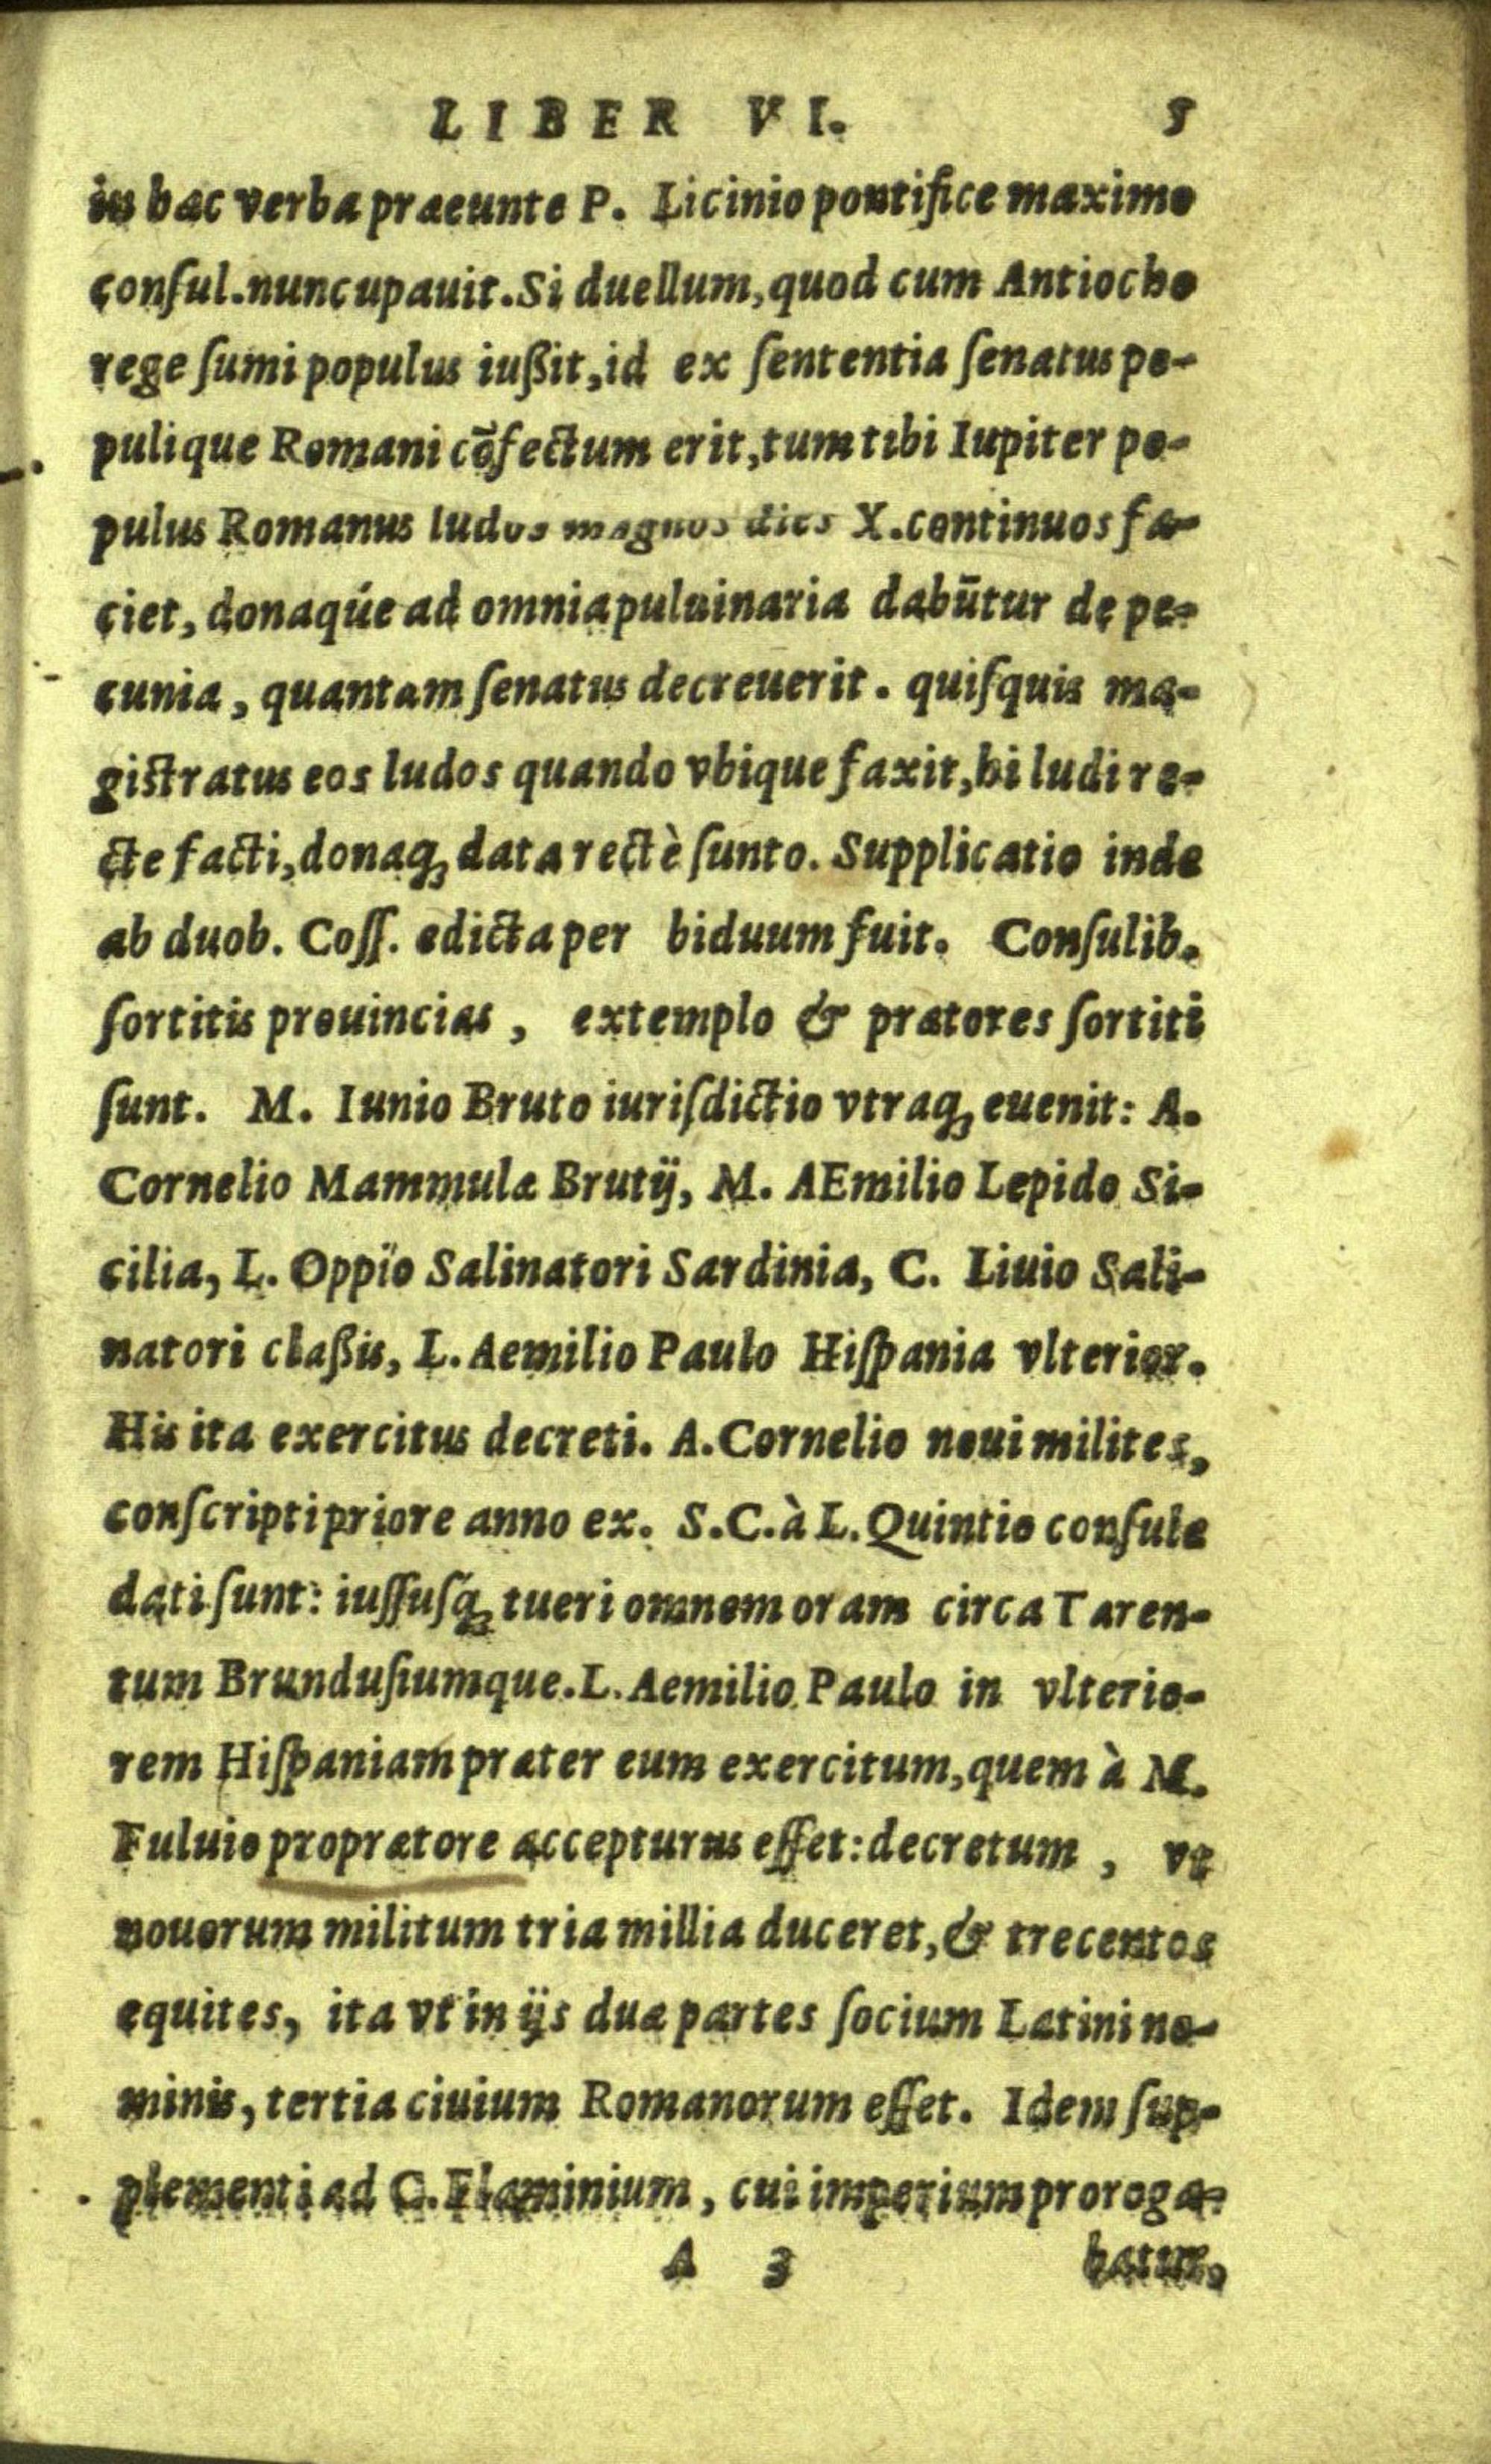 LIBER VI. 5
in hac verba praeunte P. Licinio pontifice maximo
conſul.nuncupauit.Si duellum,quod cum Antiocho
rege ſumi populus iußit,id ex ſententia ſenatus po-
pulique Romani cõfectum erit,tum tibi Iupiter po-
pulus Romanus ludos magnos dies X.continuos fa-
ciet, donaqúe ad omnia puluinaria dabūtur de pe-
cunia, quantam ſenatus decreuerit. quiſquis ma-
giſtratus eos ludos quando vbique faxit,hi ludi re-
cte facti,donaq; data rectè ſunto. Supplicatio inde
ab duob. Coſſ. edicta per biduum fuit. Conſulib.
ſortitis prouincias, extemplo & prætores ſortiti
ſunt. M. Iunio Bruto iuriſdictio vtraq; euenit: A.
Cornelio Mammulæ Brutij, M. AEmilio Lepido Si-
cilia, L. Oppïo Salinatori Sardinia, C. Liuio Sali-
natori claßis, L. Aemilio Paulo Hiſpania vlterior.
His ita exercitus decreti. A.Cornelio noui milites,
conſcripti priore anno ex. S.C.à L.Quintio conſule
dati ſunt: iuſſuſq́; tueri omnem oram circa Taren-
tum Brunduſiumque.L.Aemilio Paulo in vlterio-
rem Hiſpaniam præter eum exercitum,quem à M.
Fuluio proprætore accepturus eſſet:decretum, vt
nouorum militum tria millia duceret,& trecentos
equites, ita vt in ijs duæ partes ſocium Latini no-
minis, tertia ciuium Romanorum eſſet. Idem ſup-
plementi ad C.Flaminium, cui imperium proroga-
A 3 batur,